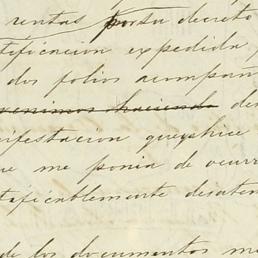 rentas por su decreto
tificacion expedida
dos folios acompañ
venimos haciendo des
nifestacion que hice
re me ponia de ocurr
tificablemente desaten
de los documentos me